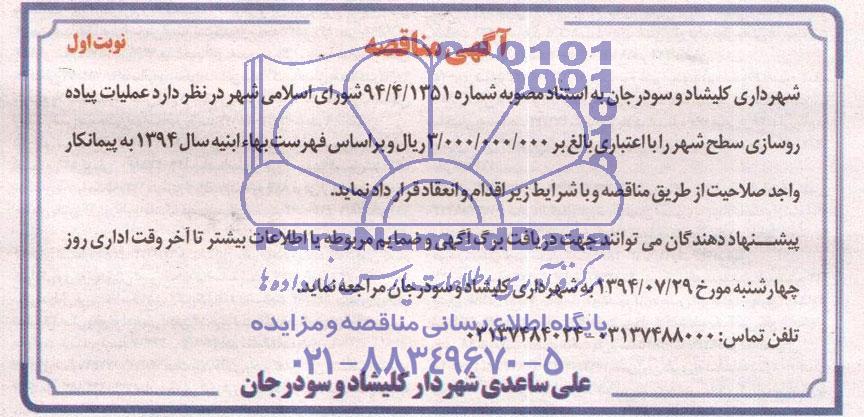 آگهی مناقصه
نوبت اول
شهرداری کلیشاد و سودرجان به استناد مصوبه شماره ۹۴/۴/۱۳۵۱ شورای اسلامی شهر در نظر دارد عملیات پیاده
روسازی سطح شهر را با اعتباری بالغ بر ۳/۰۰۰/۰۰۰/۰۰۰ ریال و بر اساس فهرست بهاء ابنیه سال ۱۳۹۴ به پیمانکار
واجد صلاحیت از طریق مناقصه و با شرایط زیر اقدام و انعقاد قرار داد نماید.
پیشنهاد دهندگان می توانند جهت دریافت برگ آگهی و ضمایم مربوطه یا اطلاعات بیشتر تا آخر وقت اداری روز
چهارشنبه مورخ ۱۳۹۴/۰۷/۲۹ به شهرداری کلیشاد و سودرجان مراجعه نماید.
تلفن تماس: ۰۳۱۳۷۴۸۸۰۰۰ -
علی ساعدی شهردار کلیشاد و سودرجان
ParsNamadData
پایگاه اطلاع رسانی مناقصه و مزایده
۰۲۱-۸۸۳۴۹۶۷۰-۵